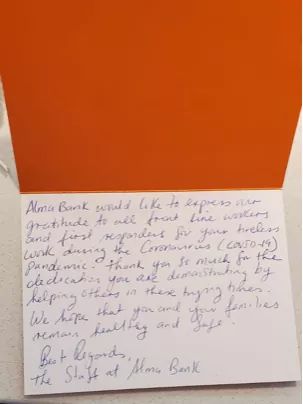 Alma Bank would like to express our
gratitude to all front line workers
and first responders for your tireless
work during the Coronavirus (COVID-19)
pandemic. Thank you so much for the
dedication you are demonstrating by
helping others in these trying times.
We hope that you and your families
remain healthy and safe.
Best Regards,
the Staff at Alma Bank